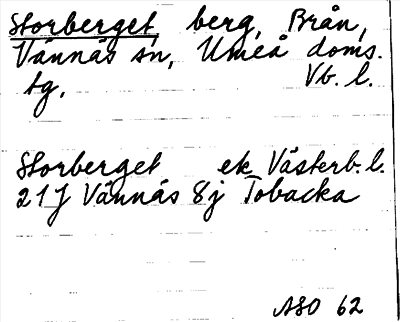 Storberget, berg, Brån,
Vännäs sn, Umeå doms.
tg, Vb. l.
Storberget ek Västerb. l.
21J Vännäs 8j Tobacka
ASO 62